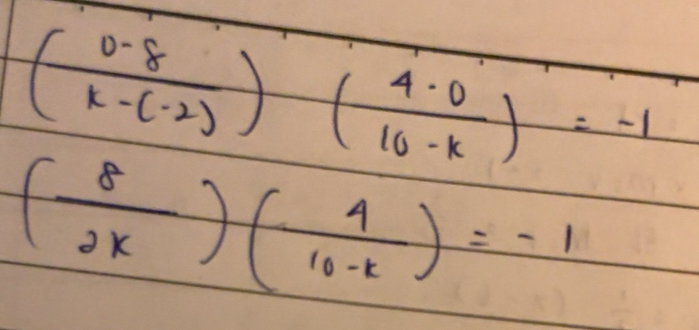 (0-8 / k-(-2)) (4-0 / 10-k) = -1
(8 / 2k) (4 / 10-k) = -1